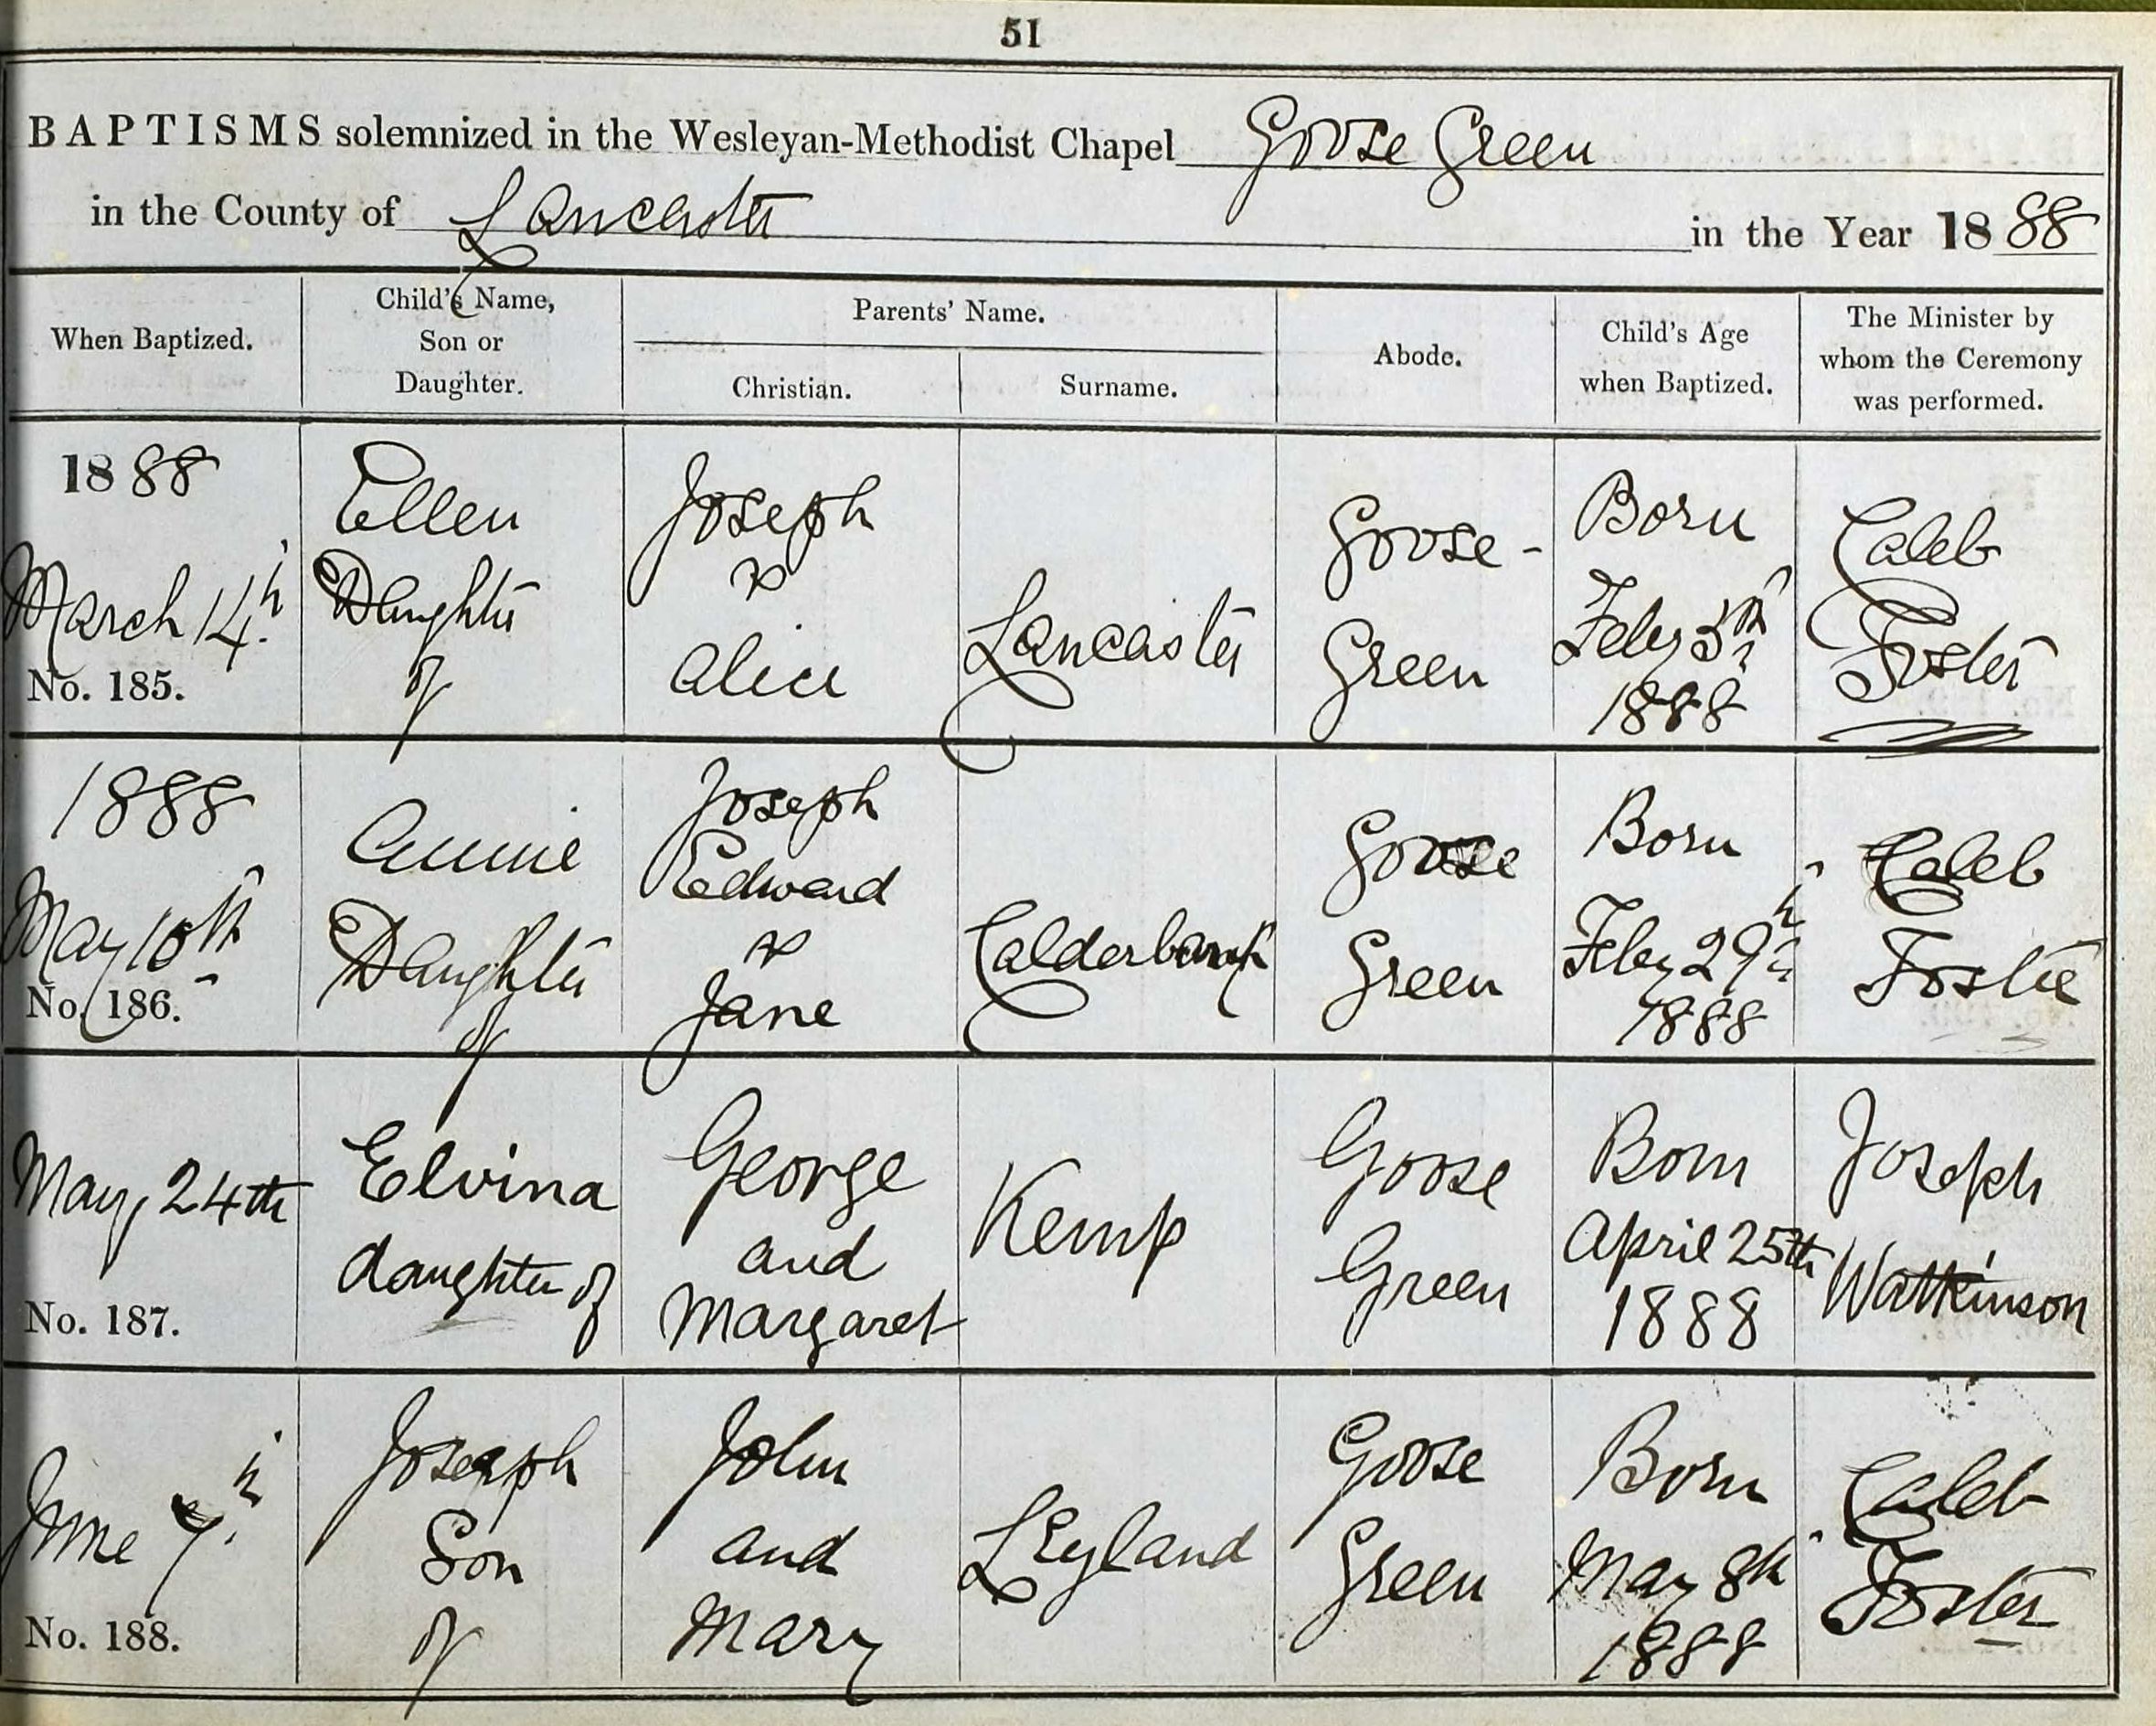 51
BAPTISMS solemnized in the Wesleyan-Methodist Chapel Goose Green
in the County of Lancaster in the Year 1888
When Baptized.
Child's Name,
Son or
Daughter.
Parents' Name.
Christian.
Surname.
Abode.
Child's Age
when Baptized.
The Minister by
whom the Ceremony
was performed.
1888
March 14th
No. 185.
Ellen
Daughter
of
Joseph
&
Alice
Lancaster
Goose-
Green
Born
Feby 5th
1888
Caleb
Foster
1888
May 10th
No. 186.
Annie
Daughter
of
Joseph
Edward
&
Jane
Calderbank
Goose
Green
Born
Feby 29th
1888
Caleb
Foster
May 24th
No. 187.
Elvina
daughter of
George
and
Margaret
Kemp
Goose
Green
Born
April 25th
1888
Joseph
Watkinson
June 7th
No. 188.
Joseph
Son
of
John
and
Mary
Leyland
Goose
Green
Born
May 8th
1888
Caleb
Foster